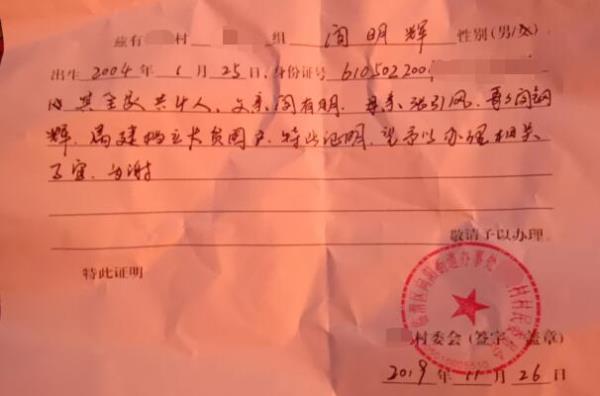 兹有 村 组 闫明辉 性别(男/女)
出生 2004 年 1 月 25 日,身份证号 610502200
其全家共4人,父亲闫有明,母亲张引凤,哥哥闫钢
辉,属建档立卡贫困户,特此证明,望予以办理相关
事宜,为谢
敬请予以办理。
特此证明
村委会(签字 盖章)
2019 年 11 月 26 日